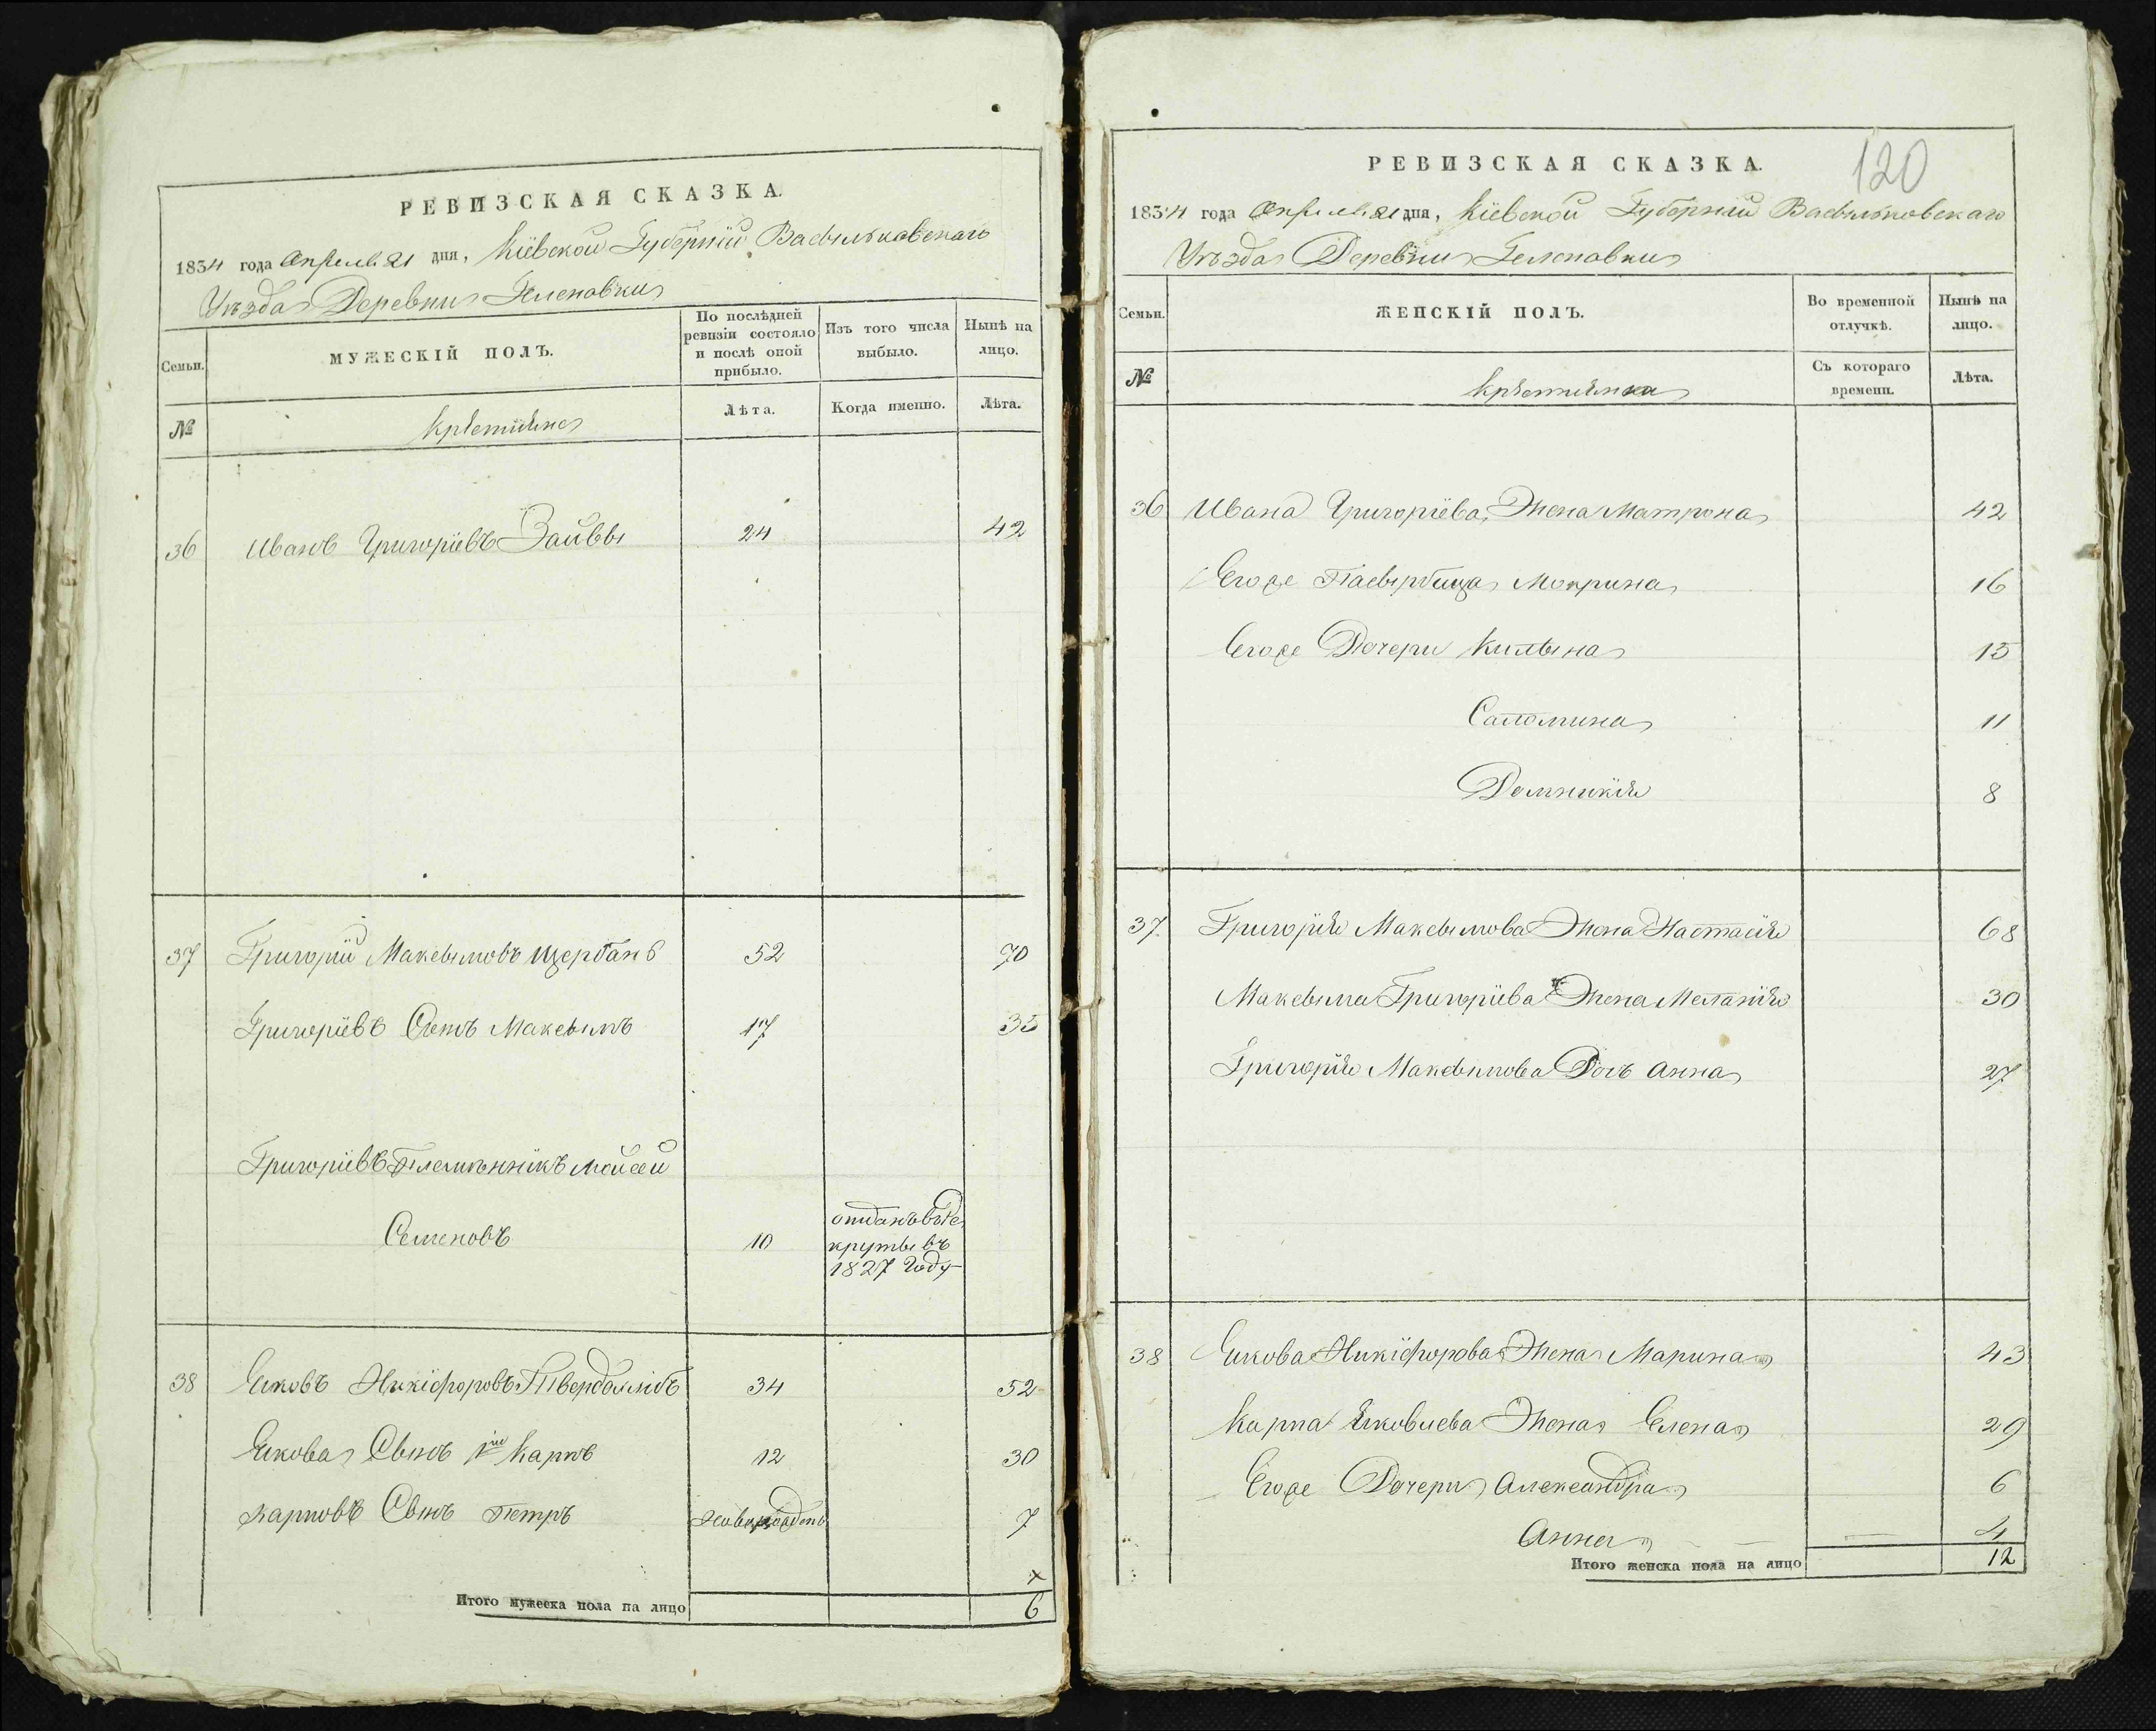 РЕВИЗСКАЯ СКАЗКА.
1834 года Апреля 21 дня, Кіевской Губерніи Васильковскаго
Уѣзда Деревни Еленовки
Семьи. МУЖЕСКІЙ ПОЛЪ. По послѣдней ревизіи состояло и послѣ оной прибыло. Изъ того числа выбыло. Нынѣ на лицо.
№ Крестияне Лѣта. Когда именно. Лѣта.
36 Иванъ Григоріевъ 24 42
37 Григорій Максымовъ Щербань 52 70
Григоріевъ Сынъ Максымъ 17 35
Григоріевъ Племѣнникъ Мойсей
Семеновъ 10 отданъ въ Ре
круты въ
1827 году
38 Яковъ Никіфоровъ Твердохлібъ 34 52
Якова Сынъ 1й Карпъ 12 30
Карповъ Сынъ Петръ новорожденъ 7
Итого мужеска пола на лицо 6
РЕВИЗСКАЯ СКАЗКА. 120
1834 года Апреля 21 дня, Кіевской Губерніи Васильковскаго
Уѣзда Деревни Геленовки
Семьи. ЖЕНСКІЙ ПОЛЪ. Во временной отлучкѣ. Нынѣ на лицо.
№ Крестиянки Съ котораго времени. Лѣта.
36 Ивана Григоріева Жена Матрона 42
Егоже Падчерица Мокрина 16
Егоже Дочери Килына 15
Саломина 11
Домникія 8
37 Григорія Максымова Жена Настасія 68
Максыма Григоріева Жена Меланія 30
Григорія Максымова Дочь Анна 27
38 Якова Никіфорова Жена Марина 43
Карпа Яковлева Жена Елена 29
Егоже Дочери Александра 6
Анна 4
Итого женска пола на лицо 12